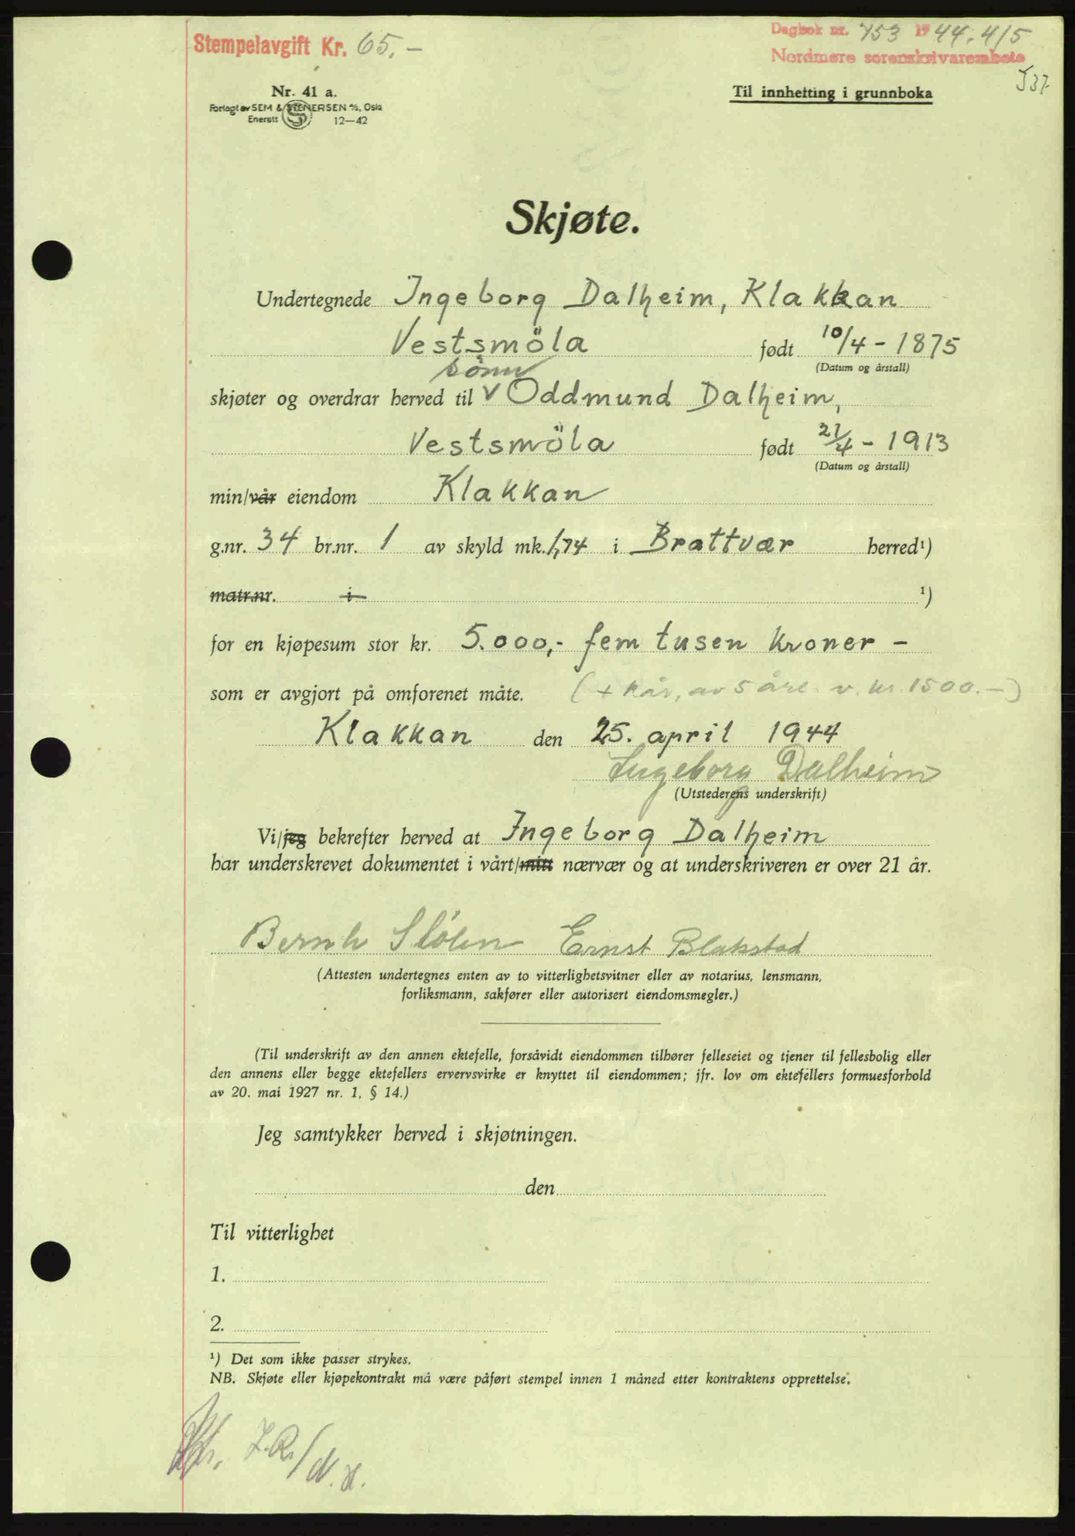 Stempelavgift Kr. 65.-
Dagbok nr. 753 1944. 4/5
Nordmøre sorenskriverembete
537.
Nr. 41 a.
Forlagt av SEM & STENERSEN A/S, Oslo
Enerett 12—42
Til innhefting i grunnboka
Skjøte.
Undertegnede Ingeborg Dalheim, Klakkan
Vestsmöla født 10/4 - 1875
(Datum og årstall)
sönn
skjøter og overdrar herved til V Oddmund Dalheim,
Vestsmöla født 21/4 - 1913
(Datum og årstall)
min/vår eiendom Klakkan
g.nr. 34 br.nr. 1 av skyld mk. 1,74 i Brattvær herred¹)
matr.nr. i ¹)
for en kjøpesum stor kr. 5.000,- fem tusen kroner -
som er avgjort på omforenet måte. (+ kår, av 5 årl. v. kr. 1500.-)
Klakkan den 25. april 1944
Ingeborg Dalheim
(Utstederens underskrift)
Vi/jeg bekrefter herved at Ingeborg Dalheim
har underskrevet dokumentet i vårt/mitt nærvær og at underskriveren er over 21 år.
Bernh Stölen Ernst Blakstad
(Attesten undertegnes enten av to vitterlighetsvitner eller av notarius, lensmann,
forliksmann, sakfører eller autorisert eiendomsmegler.)
(Til underskrift av den annen ektefelle, forsåvidt eiendommen tilhører felleseiet og tjener til fellesbolig eller
den annens eller begge ektefellers ervervsvirke er knyttet til eiendommen; jfr. lov om ektefellers formuesforhold
av 20. mai 1927 nr. 1, § 14.)
Jeg samtykker herved i skjøtningen.
den
Til vitterlighet
1.
2.
¹) Det som ikke passer strykes.
NB. Skjøte eller kjøpekontrakt må være påført stempel innen 1 måned etter kontraktens opprettelse.